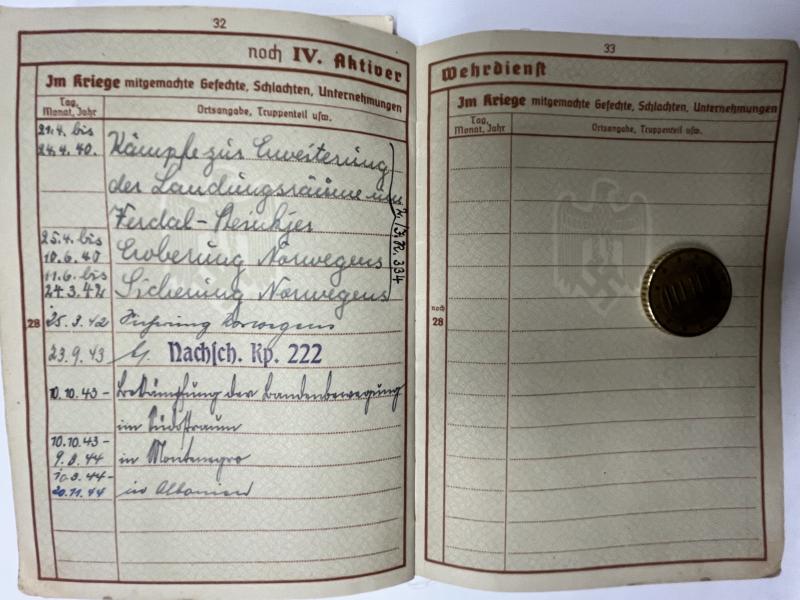 32
noch IV. Aktiver
Im Kriege mitgemachte Gefechte, Schlachten, Unternehmungen
Tag, Monat, Jahr
Ortsangabe, Truppenteil usw.
21.4. bis
24.4.40. Kämpfe zur Erweiterung
der Landungsräume um
Ferdal-Steinkjer
25.4. bis
10.6.40 Eroberung Norwegens
11.6. bis
24.3.42 Sicherung Norwegens
/J.R. 334
28
25.3.42 Sicherung Norwegens
23.9.43 Nachsch. Kp. 222
10.10.43 - Bekämpfung der Bandenbewegung
im Südostraum
10.10.43 -
9.8.44 in Montenegro
20.11.44 in Albanien
33
Wehrdienst
Im Kriege mitgemachte Gefechte, Schlachten, Unternehmungen
Tag, Monat, Jahr
Ortsangabe, Truppenteil usw.
noch
28